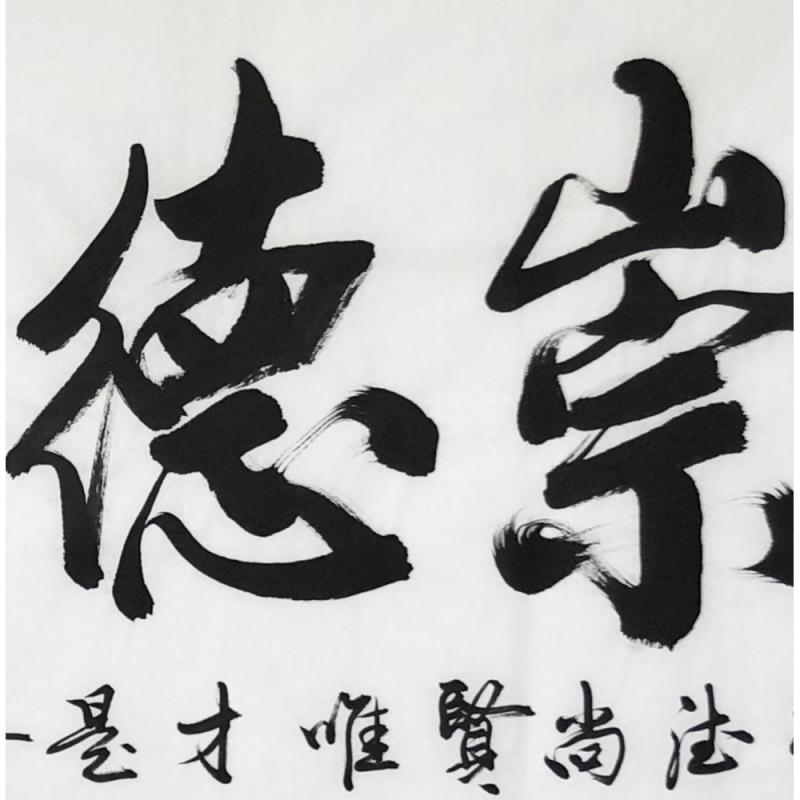 崇德
德尚賢唯才是